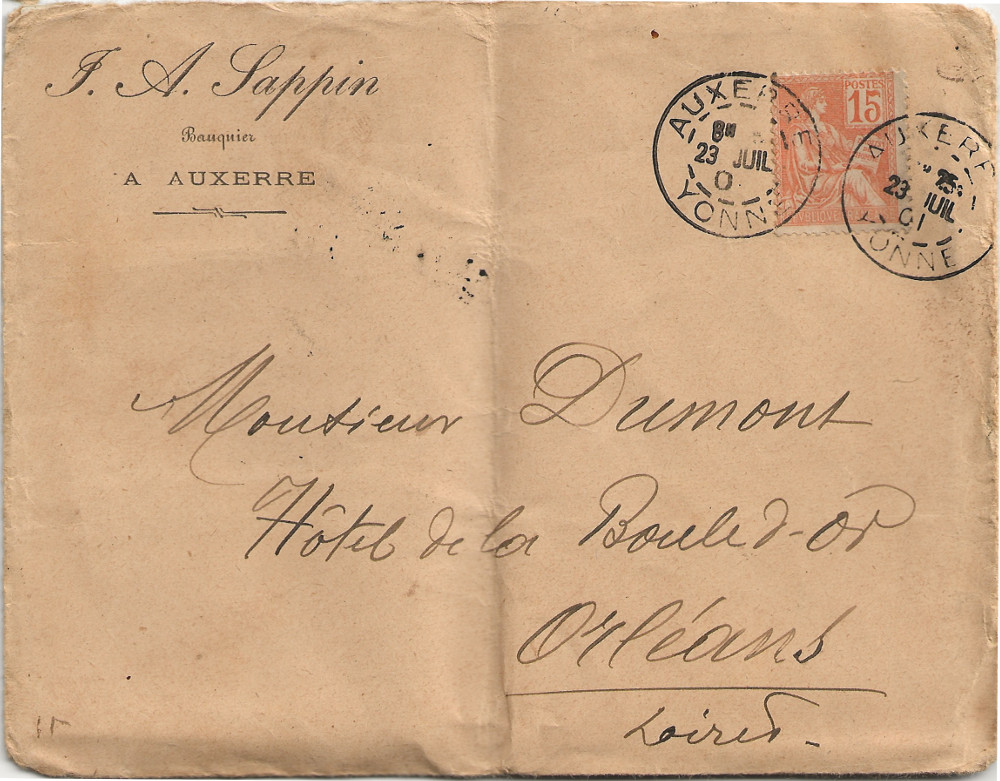 J. A. Sappin
Banquier
A AUXERRE
POSTES
15
AUXERRE
8H
23 JUIL
0
YONNE
AUXERRE
23 JUIL
01
YONNE
Monsieur Dumont
Hôtel de la Boule d-Or
Orléans
Loiret